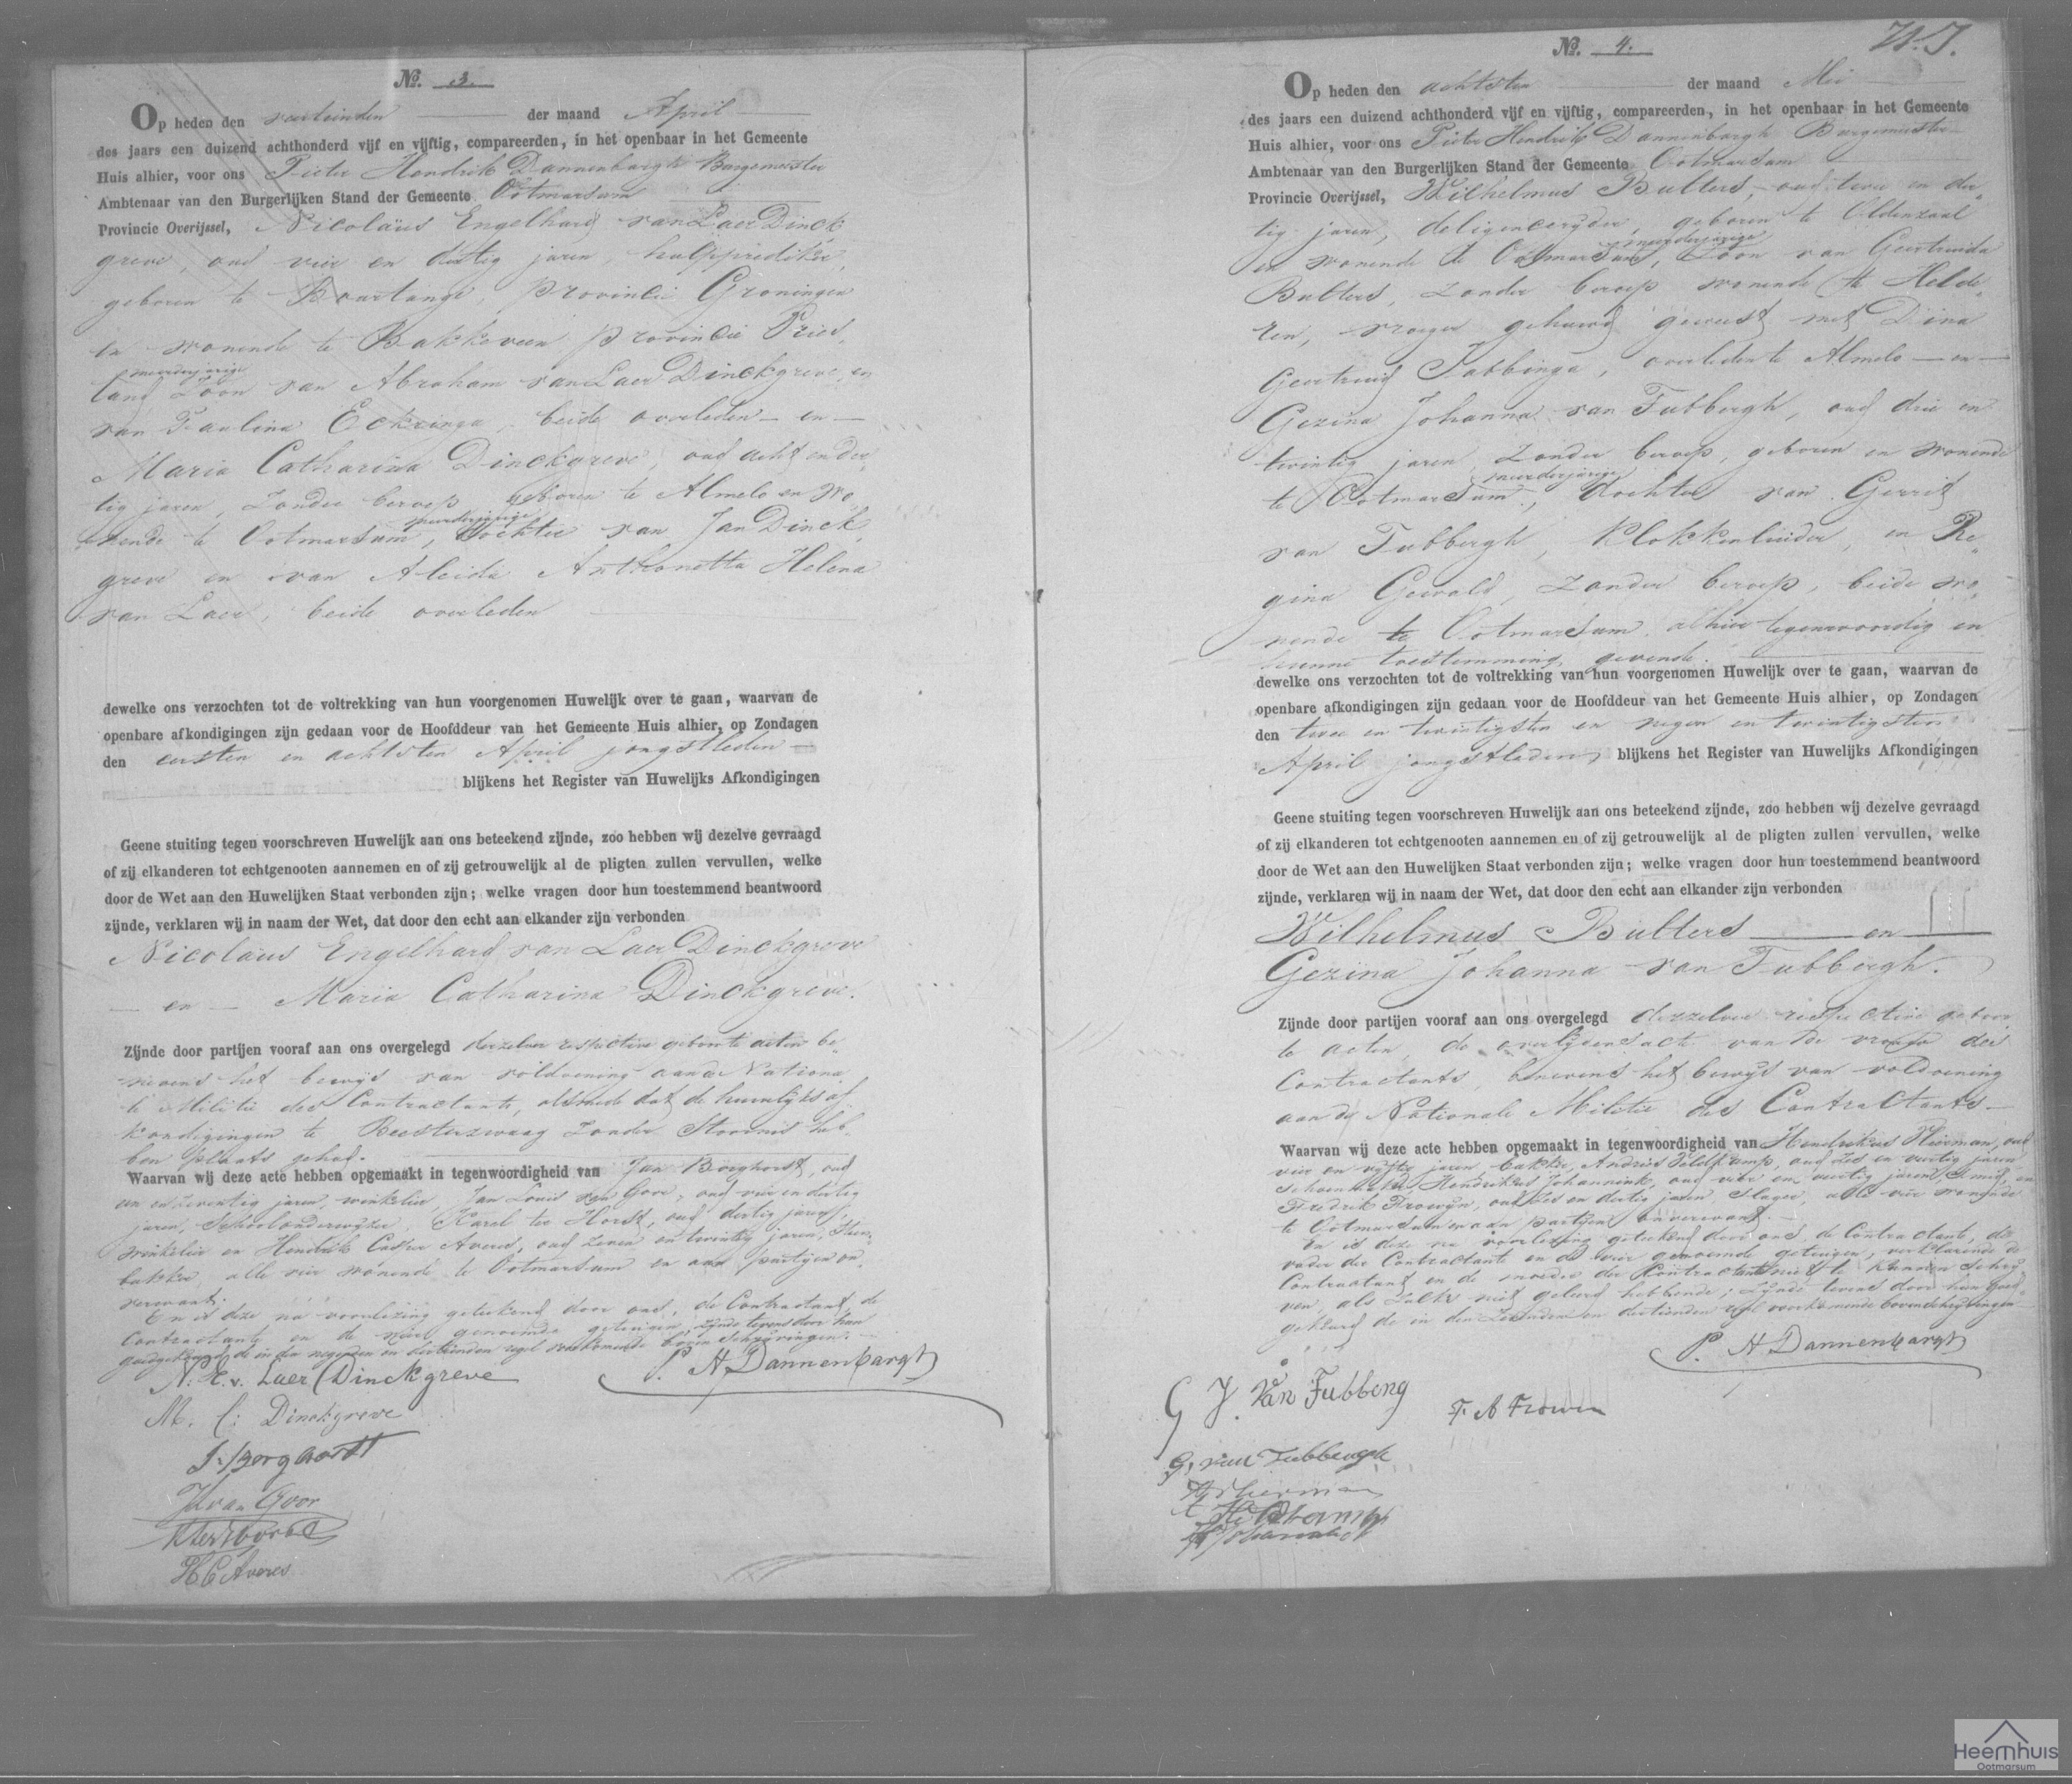 No. 3.
Op heden den veertienden der maand April
des jaars een duizend achthonderd vijf en vijftig, compareerden, in het openbaar in het Gemeente
Huis alhier, voor ons Pieter Hendrik Dannenbargh Burgemeester
Ambtenaar van den Burgerlijken Stand der Gemeente Ootmarsum
Provincie Overijssel, Nicolaüs Engelhard van Laer Dinck
greve, oud vier en dertig jaren, hulpprediker,
geboren te Bourtange, provincie Groningen
en wonende te Bakkeveen provincie Vries,
meerderjarige
land Zoon van Abraham van Laer Dinckgreve, en
van Paulina Eckringa, beide overleden — en —
Maria Catharina Dinckgreve, oud acht en der
tig jaren, zonder beroep, geboren te Almelo en wo
meerderjarige
nende te Ootmarsum, dochter van Jan Dinck,
greve en van Aleida Anthonetta Helena
van Laer, beide overleden
dewelke ons verzochten tot de voltrekking van hun voorgenomen Huwelijk over te gaan, waarvan de
openbare afkondigingen zijn gedaan voor de Hoofddeur van het Gemeente Huis alhier, op Zondagen
den eersten en achtsten April jongstleden
blijkens het Register van Huwelijks Afkondigingen
Geene stuiting tegen voorschreven Huwelijk aan ons beteekend zijnde, zoo hebben wij dezelve gevraagd
of zij elkanderen tot echtgenooten aannemen en of zij getrouwelijk al de pligten zullen vervullen, welke
door de Wet aan den Huwelijken Staat verbonden zijn; welke vragen door hun toestemmend beantwoord
zijnde, verklaren wij in naam der Wet, dat door den echt aan elkander zijn verbonden
Nicolaüs Engelhard van Laer Dinckgreve
— en — Maria Catharina Dinckgreve.
Zijnde door partijen vooraf aan ons overgelegd derzelver respective geboorte acten be,
nevens het bewijs van voldoening aan de Nationa,
le Militie des Contractants, alsmede dat de huwelijks af
kondigingen te Beetsterzwaag zonder stoornis heb,
ben plaats gehad.
Waarvan wij deze acte hebben opgemaakt in tegenwoordigheid van Jan Borghorst, oud
een en zeventig jaren, winkelier, Jan Louis van Goor, oud vier en dertig
jaren, Schoolonderwijzer, Karel ter Horst, oud dertig jaren,
winkelier en Hendrik Casper Averes, oud zeven en twintig jaren, steen,
bakker, alle vier wonende te Ootmarsum en aan partijen on,
verwant.
En is deze na voorlezing geteekend door ons, de Contractant, de
Contractante en de vier genoemde getuigen, zijnde tevens door hun
goedgekeurd de in den negenden en dertienden regel voorkomende boven schrijvingen.
N. E. v. Laer Dinckgreve
P. H Dannenbargh
M. C: Dinckgreve
J. Borghorst
JL van Goor
K ter Horst
H C Averes
No. 4.
Op heden den achtsten der maand Mei
des jaars een duizend achthonderd vijf en vijftig, compareerden, in het openbaar in het Gemeente
Huis alhier, voor ons Pieter Hendrik Dannenbargh Burgemeester
Ambtenaar van den Burgerlijken Stand der Gemeente Ootmarsum
Provincie Overijssel, Wilhelmus Bulters, oud twee en der
tig jaren, deligencerijder, geboren te Oldenzaal
meerderjarige
en wonende te Ootmarsum, Zoon van Geertruida
Bulters, zonder beroep wonende te Helde,
ren, vroeger gehuwd geweest met Dina
Geertruid Jabbinga, overleden te Almelo — en —
Gezina Johanna van Tubbergh, oud drie en
twintig jaren, zonder beroep, geboren en wonende
meerderjarige
te Ootmarsum, dochter van Gerrit
van Tubbergh, klokkenluider, en Re,
gina Gewald, zonder beroep, beide wo,
nende te Ootmarsum, alhier tegenwoordig en
hunne toestemming gevende.
dewelke ons verzochten tot de voltrekking van hun voorgenomen Huwelijk over te gaan, waarvan de
openbare afkondigingen zijn gedaan voor de Hoofddeur van het Gemeente Huis alhier, op Zondagen
den twee en twintigsten en negen en twintigsten
April jongstleden, blijkens het Register van Huwelijks Afkondigingen
Geene stuiting tegen voorschreven Huwelijk aan ons beteekend zijnde, zoo hebben wij dezelve gevraagd
of zij elkanderen tot echtgenooten aannemen en of zij getrouwelijk al de pligten zullen vervullen, welke
door de Wet aan den Huwelijken Staat verbonden zijn; welke vragen door hun toestemmend beantwoord
zijnde, verklaren wij in naam der Wet, dat door den echt aan elkander zijn verbonden
Wilhelmus Bulters — en —
Gezina Johanna van Tubbergh.
Zijnde door partijen vooraf aan ons overgelegd derzelver respective geboor
te acten, de overlijdensacte van de vrouw des
Contractants, benevens het bewijs van voldoening
aan de Nationale Militie des Contractants —
Waarvan wij deze acte hebben opgemaakt in tegenwoordigheid van Hendrikus Hierman, oud
vier en vijftig jaren, bakker, Andries Veldkamp, oud zes en veertig jaren
schoenmaker, Hendrikus Johannink, oud vier en veertig jaren, smid, en
Fredrik Frowijn, oud zes en dertig jaren, slager, alle vier wonende
te Ootmarsum en aan partijen onverwant.
En is deze na voorlezing geteekend door ons, de Contractante, de
vader der Contractante en de vier genoemde getuigen, verklarende de
Contractant en de moeder der Contractante niet te kunnen schrij
ven, als zulks niet geleerd hebbende; zijnde tevens door hun goed,
gekeurd de in den zevenden en dertienden regel voorkomende bovenschrijvingen
P. H Dannenbargh
G J. Van Tubberg
F. A Frowin
G, van Tubbergh
H Hierman
A Veldkamp
H Johannink
Heemhuis
Ootmarsum